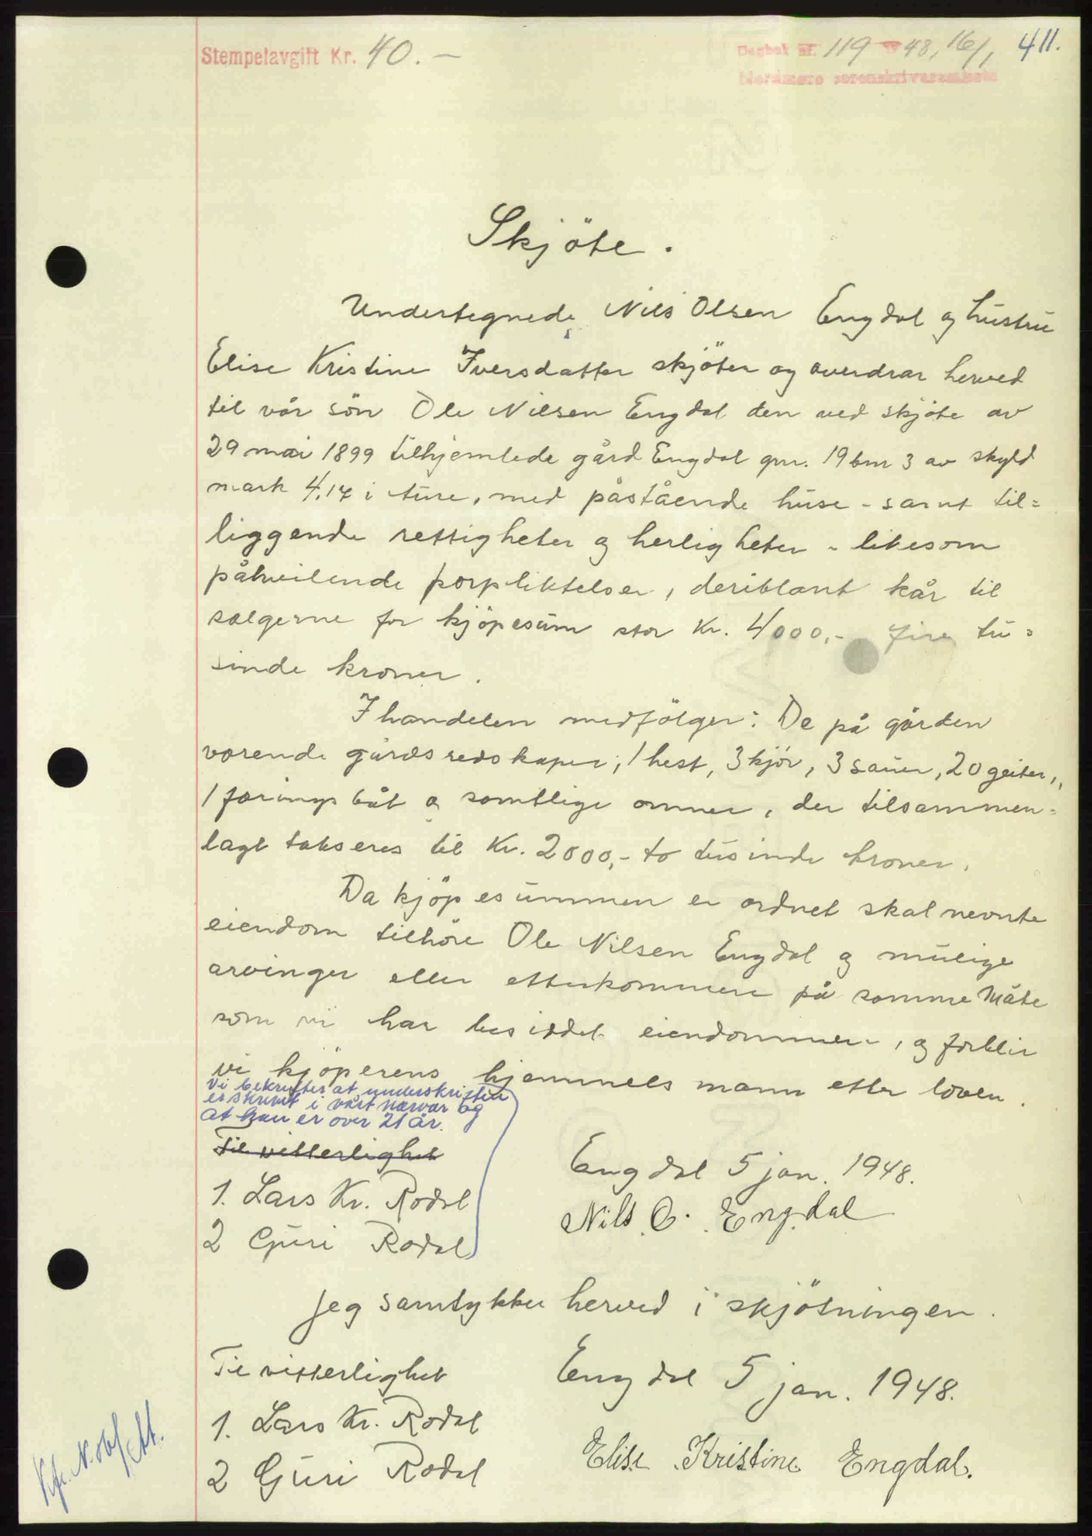 Stempelavgift Kr. 40. -
Dagbok nr. 119 48, 16/1, 411.
Nordmøre sorenskriverembete
Skjöte.
Undertegnede Nils Olsen Engdal og hustru
Elise Kristine Iversdatter skjöter og overdrar herved
til vår sön Ole Nilsen Engdal den ved skjöte av
29 mai 1899 tilhjemlede gård Engdal gnr. 19 bnr 3 av skyld
mark 4,14 i ture, med påstående huse - samt til=
liggende rettigheter og herligheter - likesom
påhveilende forpliktelser, deriblant kår til
selgerne for kjöpesum stor Kr. 4000,- fire tu=
sinde kroner.
I handelen medfölger: De på gården
værende gårdsredskaper, 1 hest, 3 kjör, 3 sauer, 20 geiter,
1 færingsbåt og samtlige omner, der tilsammen=
lagt takseres til Kr. 2000,- to tusinde kroner.
Da kjöpesummen er ordnet skal nevnte
eiendom tilhöre Ole Nilsen Engdal og mulige
arvinger eller etterkommere på samme måte
som vi har besiddet eiendommen, og forblir
vi kjöperens hjemmels mann etter loven.
Vi bekrefter at underskriften
er skrevet i vårt nærvær og
at han er over 21 år.
Til vitterlighet
Engdal 5 jan. 1948.
1. Lars Kr. Rodal
Nils O. Engdal
2 Guri Rodal
Jeg samtykker herved i skjötningen.
Til vitterlighet
Engdal 5 jan. 1948.
1. Lars Kr. Rodal
2 Guri Rodal
Elise Kristine Engdal.